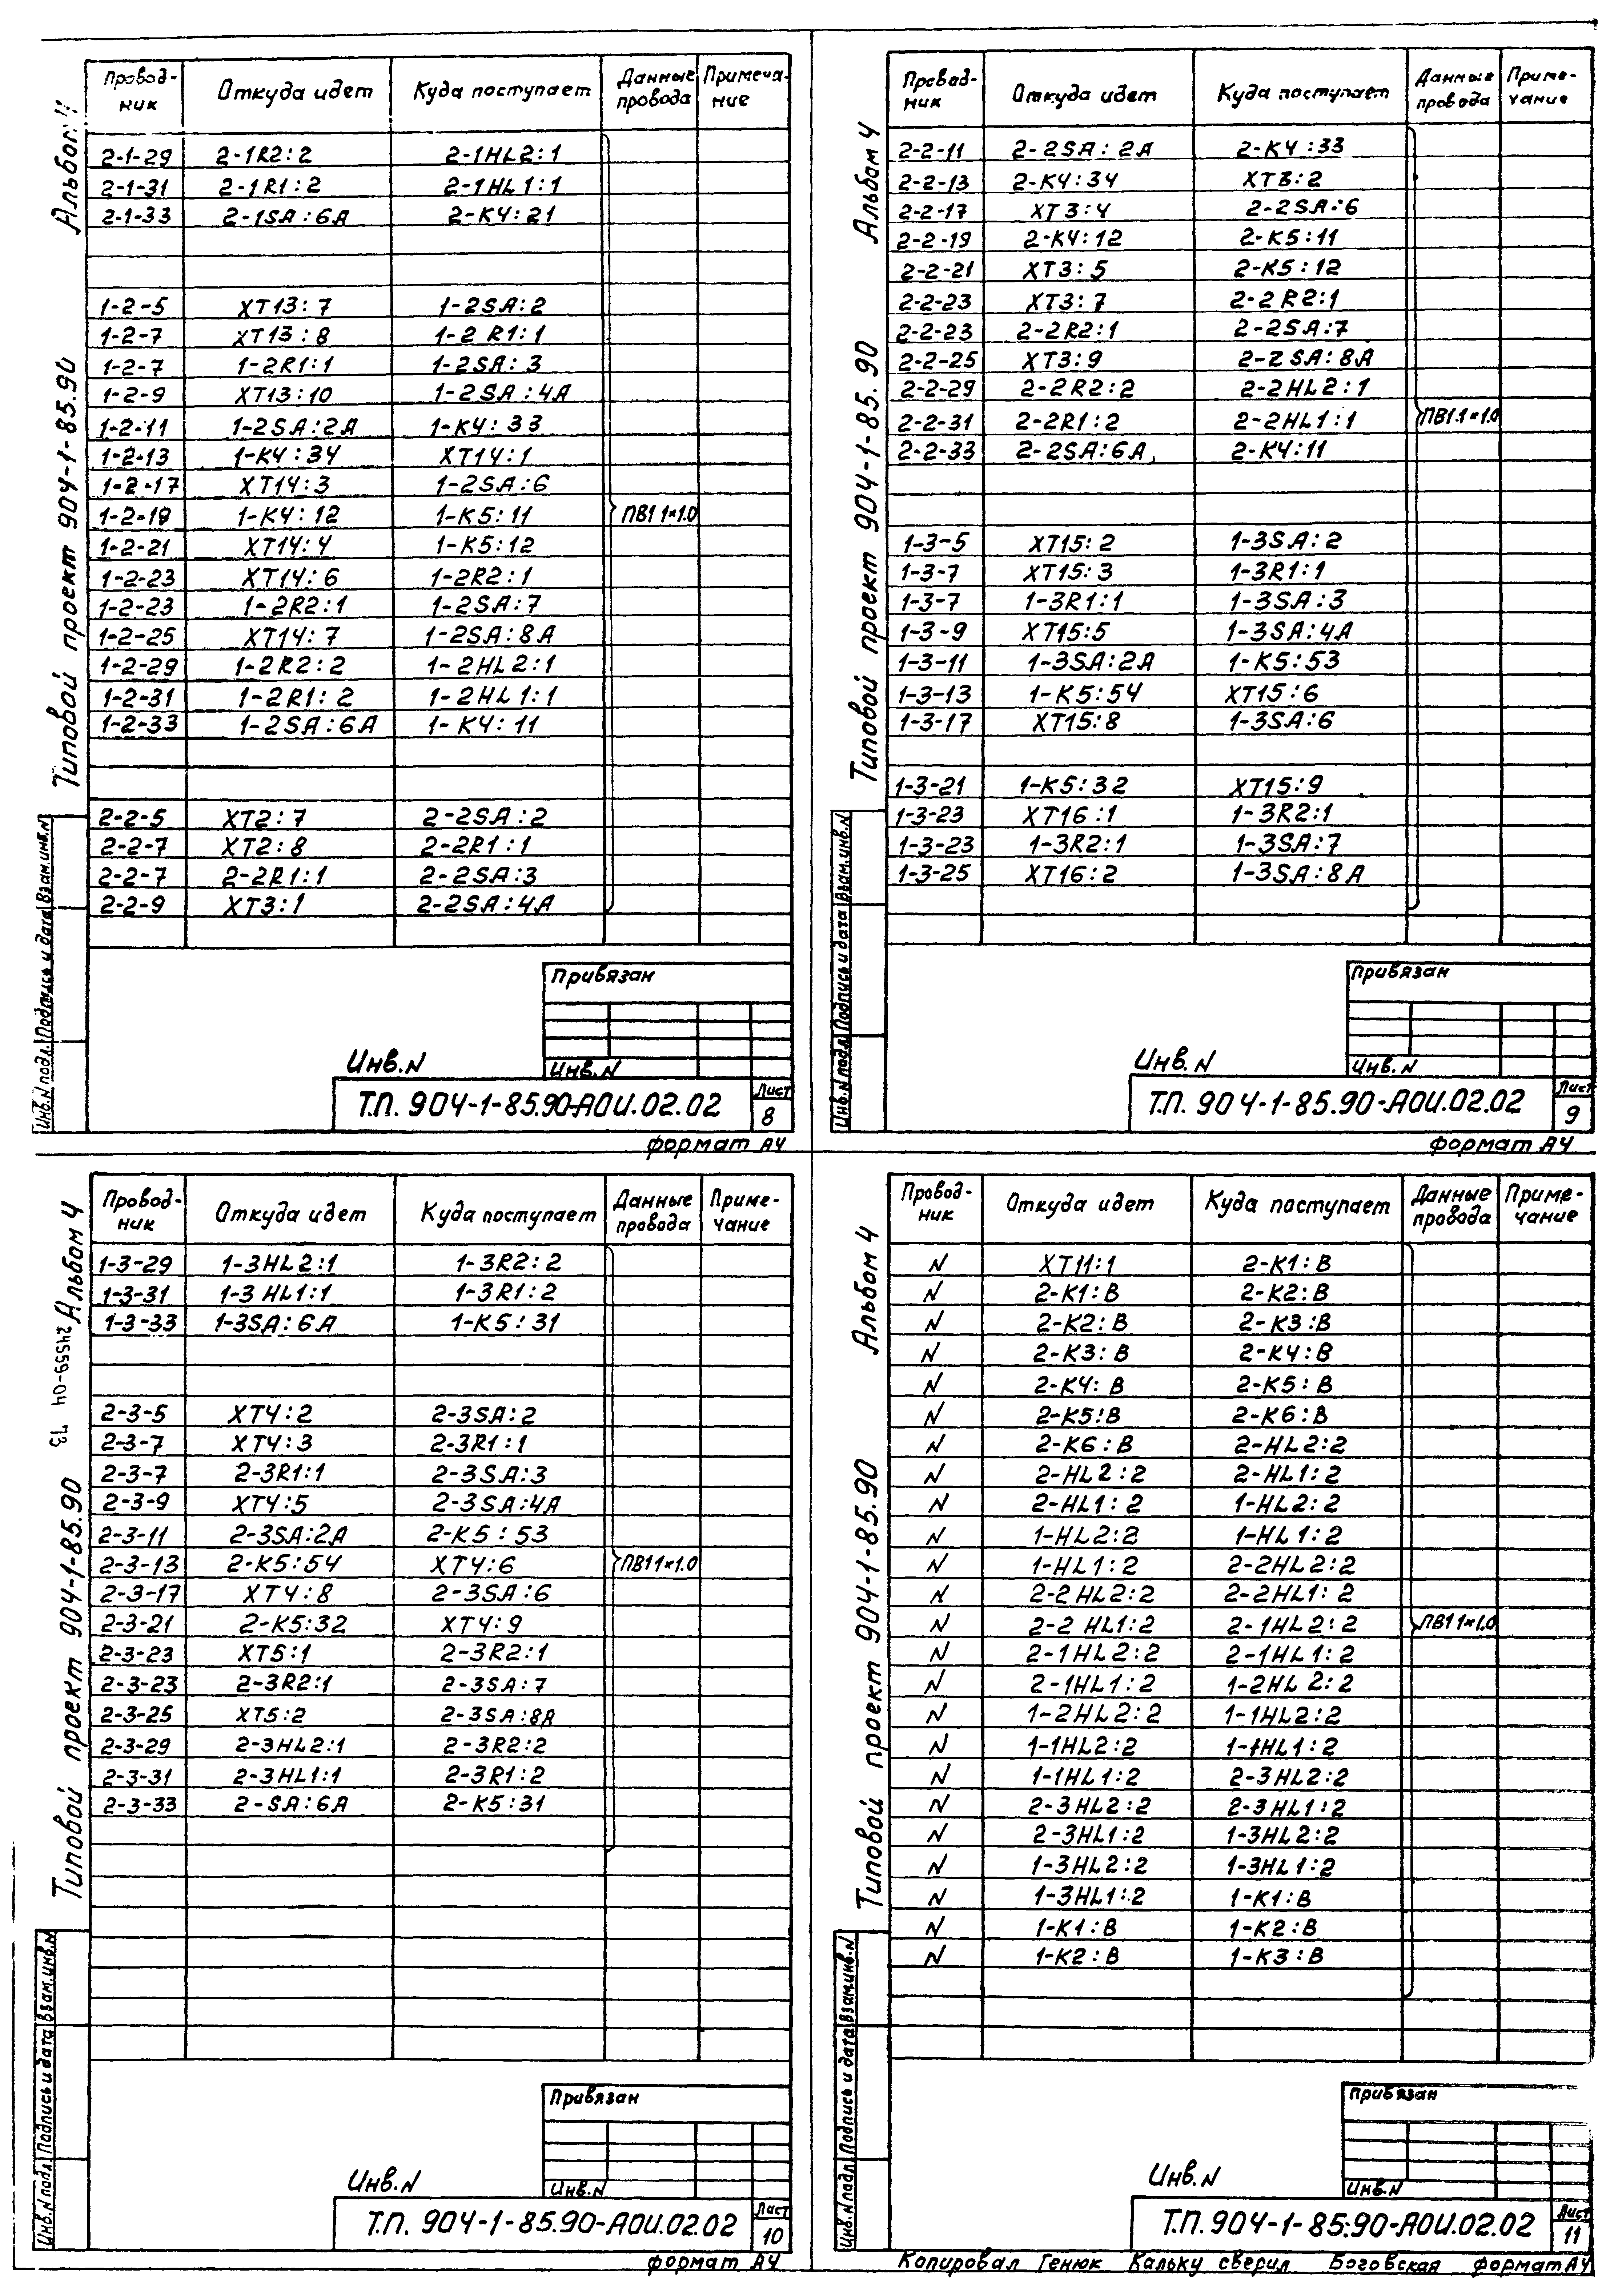 Альбом 4
Типовой проект 904-1-85.90
Провод-ник Откуда идет Куда поступает Данные провода Примеча-ние
2-1-29 2-1R2:2 2-1HL2:1
2-1-31 2-1R1:2 2-1HL1:1
2-1-33 2-1SA:6A 2-K4:21
1-2-5 XT13:7 1-2SA:2
1-2-7 XT13:8 1-2R1:1
1-2-7 1-2R1:1 1-2SA:3
1-2-9 XT13:10 1-2SA:4A
1-2-11 1-2SA:2A 1-K4:33
1-2-13 1-K4:34 XT14:1
1-2-17 XT14:3 1-2SA:6
1-2-19 1-K4:12 1-K5:11 ПВ1 1×1.0
1-2-21 XT14:4 1-K5:12
1-2-23 XT14:6 1-2R2:1
1-2-23 1-2R2:1 1-2SA:7
1-2-25 XT14:7 1-2SA:8A
1-2-29 1-2R2:2 1-2HL2:1
1-2-31 1-2R1:2 1-2HL1:1
1-2-33 1-2SA:6A 1-K4:11
2-2-5 XT2:7 2-2SA:2
2-2-7 XT2:8 2-2R1:1
2-2-7 2-2R1:1 2-2SA:3
2-2-9 XT3:1 2-2SA:4A
Инв.N подл. Подпись и дата Взам.инв.N
Привязан
Инв.N
Инв.N
Т.П. 904-1-85.90-АОИ.02.02
Лист
8
формат А4
Альбом 4
Типовой проект 904-1-85.90
Провод-ник Откуда идет Куда поступает Данные провода Приме-чание
2-2-11 2-2SA:2A 2-K4:33
2-2-13 2-K4:34 XT3:2
2-2-17 XT3:4 2-2SA:6
2-2-19 2-K4:12 2-K5:11
2-2-21 XT3:5 2-K5:12
2-2-23 XT3:7 2-2R2:1
2-2-23 2-2R2:1 2-2SA:7
2-2-25 XT3:9 2-2SA:8A
2-2-29 2-2R2:2 2-2HL2:1
2-2-31 2-2R1:2 2-2HL1:1 ПВ1 1×1.0
2-2-33 2-2SA:6A 2-K4:11
1-3-5 XT15:2 1-3SA:2
1-3-7 XT15:3 1-3R1:1
1-3-7 1-3R1:1 1-3SA:3
1-3-9 XT15:5 1-3SA:4A
1-3-11 1-3SA:2A 1-K5:53
1-3-13 1-K5:54 XT15:6
1-3-17 XT15:8 1-3SA:6
1-3-21 1-K5:32 XT15:9
1-3-23 XT16:1 1-3R2:1
1-3-23 1-3R2:1 1-3SA:7
1-3-25 XT16:2 1-3SA:8A
Инв.N подл. Подпись и дата Взам.инв.N
Привязан
Инв.N
Инв.N
Т.П. 904-1-85.90-АОИ.02.02
Лист
9
формат А4
Альбом 4
24559-04 13
Типовой проект 904-1-85.90
Провод-ник Откуда идет Куда поступает Данные провода Приме-чание
1-3-29 1-3HL2:1 1-3R2:2
1-3-31 1-3HL1:1 1-3R1:2
1-3-33 1-3SA:6A 1-K5:31
2-3-5 XT4:2 2-3SA:2
2-3-7 XT4:3 2-3R1:1
2-3-7 2-3R1:1 2-3SA:3
2-3-9 XT4:5 2-3SA:4A
2-3-11 2-3SA:2A 2-K5:53
2-3-13 2-K5:54 XT4:6 ПВ1 1×1.0
2-3-17 XT4:8 2-3SA:6
2-3-21 2-K5:32 XT4:9
2-3-23 XT5:1 2-3R2:1
2-3-23 2-3R2:1 2-3SA:7
2-3-25 XT5:2 2-3SA:8A
2-3-29 2-3HL2:1 2-3R2:2
2-3-31 2-3HL1:1 2-3R1:2
2-3-33 2-SA:6A 2-K5:31
Инв.N подл. Подпись и дата Взам.инв.N
Привязан
Инв.N
Инв.N
Т.П. 904-1-85.90-АОИ.02.02
Лист
10
формат А4
Альбом 4
Типовой проект 904-1-85.90
Провод-ник Откуда идет Куда поступает Данные провода Приме-чание
N XT11:1 2-K1:B
N 2-K1:B 2-K2:B
N 2-K2:B 2-K3:B
N 2-K3:B 2-K4:B
N 2-K4:B 2-K5:B
N 2-K5:B 2-K6:B
N 2-K6:B 2-HL2:2
N 2-HL2:2 2-HL1:2
N 2-HL1:2 1-HL2:2
N 1-HL2:2 1-HL1:2
N 1-HL1:2 2-2HL2:2
N 2-2HL2:2 2-2HL1:2
N 2-2HL1:2 2-1HL2:2 ПВ1 1×1.0
N 2-1HL2:2 2-1HL1:2
N 2-1HL1:2 1-2HL2:2
N 1-2HL2:2 1-1HL2:2
N 1-1HL2:2 1-1HL1:2
N 1-1HL1:2 2-3HL2:2
N 2-3HL2:2 2-3HL1:2
N 2-3HL1:2 1-3HL2:2
N 1-3HL2:2 1-3HL1:2
N 1-3HL1:2 1-K1:B
N 1-K1:B 1-K2:B
N 1-K2:B 1-K3:B
Инв.N подл. Подпись и дата Взам.инв.N
Привязан
Инв.N
Инв.N
Т.П. 904-1-85.90-АОИ.02.02
Лист
11
Копировал Генюк Кальку сверил Боговская формат А4